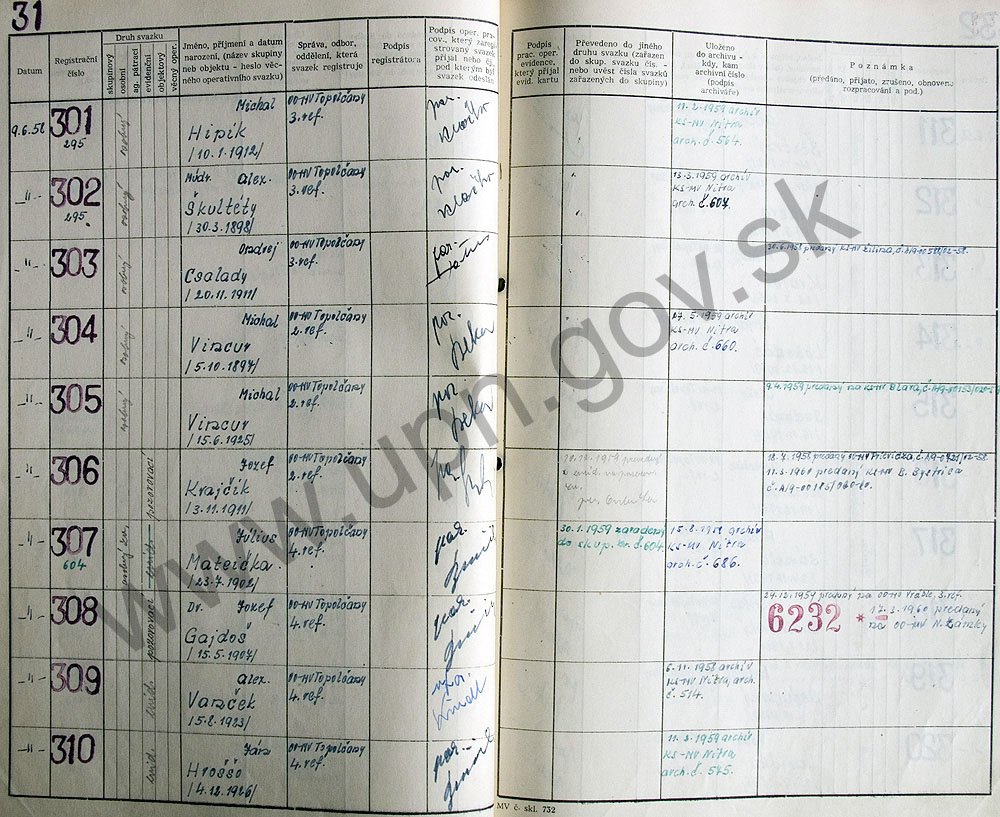 31
Datum
Registrační číslo
Druh svazku
skupinový
osobní
ag. pátrací
evidenční
objektový
věcný oper.
Jméno, příjmení a datum
narození, (název skupiny
neb objektu - heslo věc-
ného operativního svazku)
Správa, odbor,
oddělení, která
svazek registruje
Podpis
registrátora
Podpis oper. pra-
cov., který zareg
strovaný svazek
přijal nebo či.
pod kterým byl
svazek odeslán
Podpis
prac. oper.
evidence,
který přijal
evid. kartu
Převedeno do jiného
druhu svazku (zařazen
do skup. svazku čís. -
nebo uvést čísla svazků
zařazených do skupiny)
Uloženo
do archivu -
kdy, kam
archivní číslo
(podpis
archiváře)
Poznámka
(předáno, přijato, zrušeno, obnoven.,
rozpracování a pod.)
9.6.58 301 295 osobný Michal Hipík /10.1.1912/ OO-MV Topolčany 3.ref. por.
11.2.1959 archív KS-MV Nitra arch.č.564.
-"- 302 295 osobný Múdr. Alex. Škultéty /30.3.1898/ OO-MV Topolčany 3.ref. por.
13.3.1959 archív KS-MV Nitra arch.č.607.
-"- 303 osobný Ondrej Csalady /20.11.1911/ OO-MV Topolčany 3.ref. por.
30.6.1958 predaný KS-MV Žilina,
-"- 304 osobný Michal Vincur /5.10.1897/ OO-MV Topolčany 2.ref. por. Peka
27.5.1959 archív KS-MV Nitra arch.č.660.
-"- 305 osobný Michal Vincur /15.6.1925/ OO-MV Topolčany 2.ref. por. Peka
9.4.1959 predaný na KS-MV
-"- 306 pozorovací Jozef Krajčík /3.11.1911/ OO-MV Topolčany 2.ref.
1959
18.7.1958 predaný OO-MV Prievidza,
11.3.1960 predaný KS-MV B. Bystrica
č.A/9-00185/060-60.
-"- 307 604 Július Mateička /23.7.1902/ OO-MV Topolčany 4.ref. por.
30.1.1959 zaradený do skup. zv. č.604.
archív KS-MV Nitra arch.č.686.
-"- 308 pozorovací Dr. Jozef Gajdoš /15.5.1907/ OO-MV Topolčany 4.ref. por.
predaný na OO-MV Vráble, 3.ref.
6232 * 17.3.1960 predaný
na OO-MV N.Zámky
-"- 309 evid. Alex. Vanček /5.8.1923/ OO-MV Topolčany 4.ref.
6.11.1958 archív KS-MV Nitra, arch. č.514.
-"- 310 evid. Ján Hroššo /4.12.1926/ OO-MV Topolčany 4.ref. por.
11.3.1959 archív KS-MV Nitra arch.č.575.
MV č. skl. 732
www.upn.gov.sk